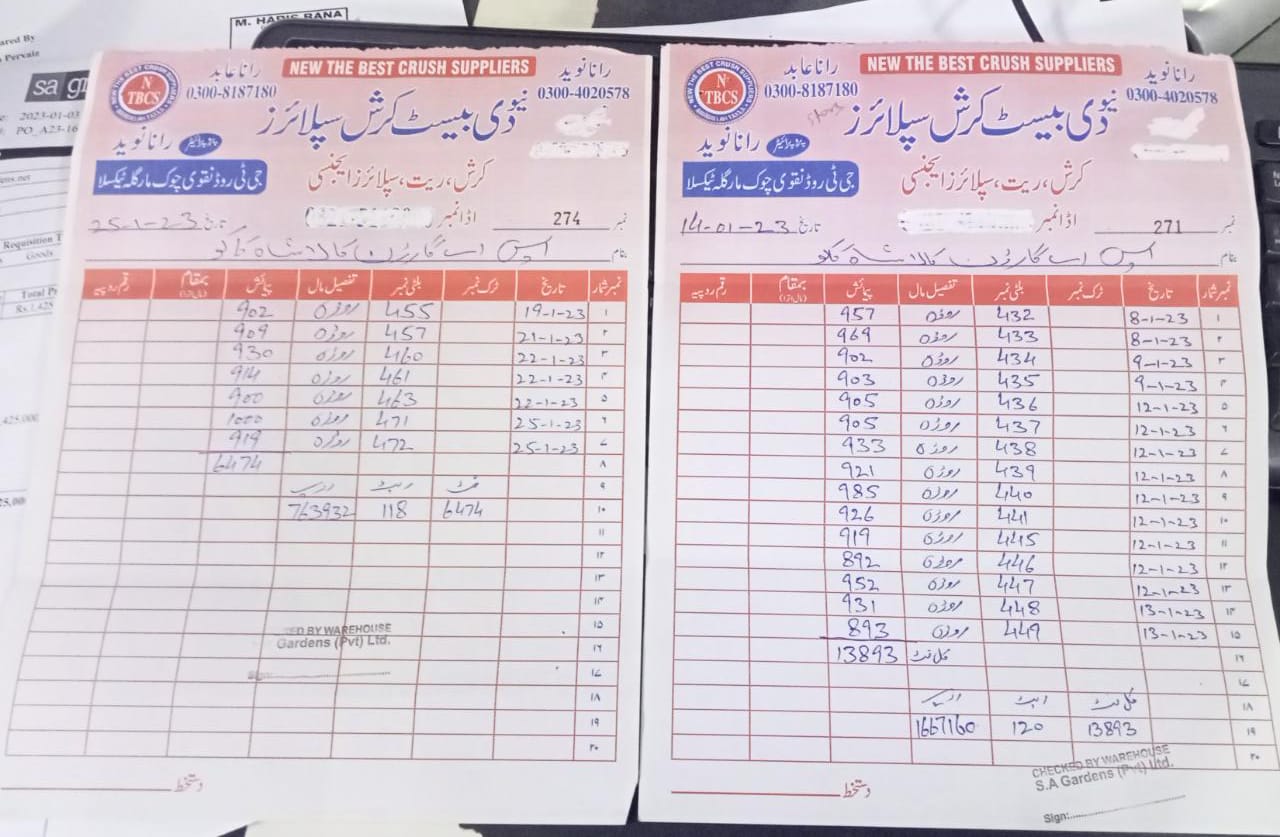 M. HARIS RANA
ared By
Pervaiz
sa
2023-01-03
PO_A23-16
Requisition T
Goods
Total Pr
Rs.1,425
425,000
NEW THE BEST CRUSH SUPPLIERS
THE BEST CRUSH SUPPLIERS
N
TBCS
رانا عابد
0300-8187180
رانا نوید
0300-4020578
نیو دی بیسٹ کرش سپلائرز
پروپرائیٹر رانا نوید
کرش، ریت، سپلائرز ایجنسی
جی ٹی روڈ نقوی چوک مارگلہ ٹیکسلا
نمبر 274 اڈا نمبر تاریخ 25-1-23
بنام ایس اے گارڈن کالا شاہ کاکو
نمبر شمار تاریخ ٹرک نمبر بلٹی نمبر تفصیل مال پیمائش بمقام رقم روپیہ
۱ 19-1-23 455 روڑہ 902
۲ 21-1-23 457 روڑہ 909
۳ 22-1-23 460 روڑہ 930
۴ 22-1-23 461 روڑہ 914
۵ 22-1-23 463 روڑہ 900
۶ 25-1-23 471 روڑہ 1000
۷ 25-1-23 472 روڑہ 919
۸ 6474
۹ فٹ ریٹ روپے
۱۰ 6474 118 763932
۱۱
۱۲
۱۳
۱۴
۱۵
۱۶
۱۷
۱۸
۱۹
۲۰
ED BY WAREHOUSE
Gardens (Pvt) Ltd.
Sign:
دستخط
NEW THE BEST CRUSH SUPPLIERS
THE BEST CRUSH SUPPLIERS
N
TBCS
رانا عابد
0300-8187180
رانا نوید
0300-4020578
نیو دی بیسٹ کرش سپلائرز
پروپرائیٹر رانا نوید
کرش، ریت، سپلائرز ایجنسی
جی ٹی روڈ نقوی چوک مارگلہ ٹیکسلا
نمبر 271 اڈا نمبر تاریخ 14-01-23
بنام ایس اے گارڈن کالا شاہ کاکو
نمبر شمار تاریخ ٹرک نمبر بلٹی نمبر تفصیل مال پیمائش بمقام رقم روپیہ
۱ 8-1-23 432 روڑہ 957
۲ 8-1-23 433 روڑہ 969
۳ 9-1-23 434 روڑہ 902
۴ 9-1-23 435 روڑہ 903
۵ 12-1-23 436 روڑہ 905
۶ 12-1-23 437 روڑہ 905
۷ 12-1-23 438 روڑہ 933
۸ 12-1-23 439 روڑہ 921
۹ 12-1-23 440 روڑہ 985
۱۰ 12-1-23 441 روڑہ 926
۱۱ 12-1-23 445 روڑہ 919
۱۲ 12-1-23 446 روڑہ 892
۱۳ 12-1-23 447 روڑہ 952
۱۴ 13-1-23 448 روڑہ 931
۱۵ 13-1-23 449 روڑہ 893
۱۶ کل فٹ 13893
۱۷
۱۸ کل فٹ ریٹ روپے
۱۹ 13893 120 1667160
۲۰
CHECKED BY WAREHOUSE
S.A Gardens (Pvt) Ltd.
Sign:
دستخط